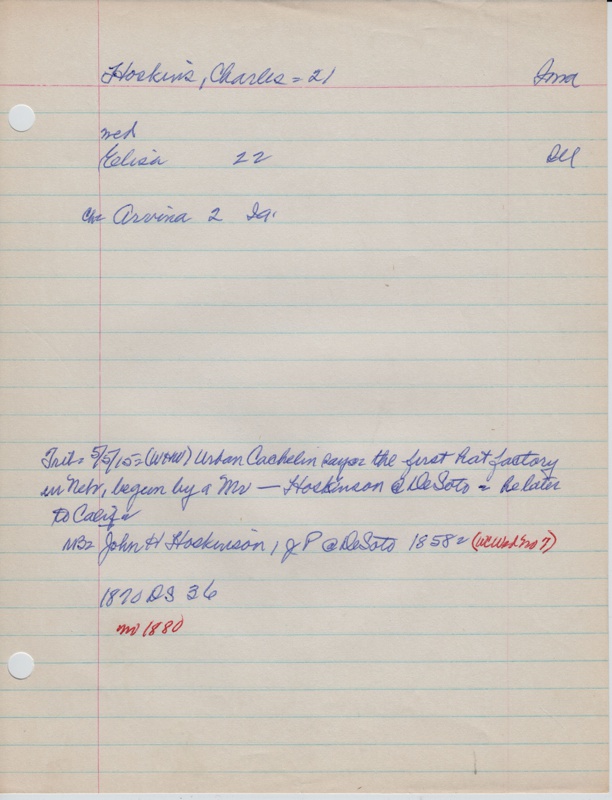 Hoskins, Charles = 21 Inna
wed
Elisa 22 Del
ch= Arvina 2 Ia.
Trib= 5/5/15=(WHW) Urban Cachelin says the first hat factory
in Nebr, begun by a Mr — Hoskinson @ DeSoto = he later
to Calif=
NB= John H Hoskinson, JP @ DeSoto 1858= (WCWed Bo 7)
1870 DS 36
no 1880